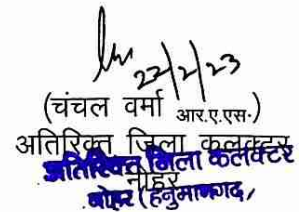 22/2/23
(चंचल वर्मा आर.ए.एस.)
अतिरिक्त जिला कलक्टर
नोहर
अतिरिक्त जिला कलक्टर
नोहर (हनुमानगढ़)